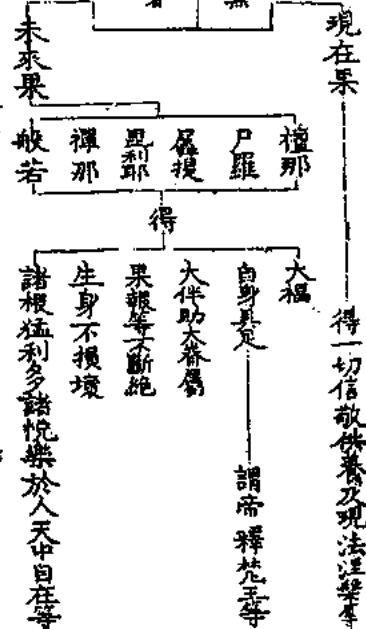 無
現在果
得一切信敬供養及現法涅槃等
未來果
檀那
尸羅
羼提
毘利耶
禪那
般若
得
大福
自身具足
謂帝釋梵王等
大伴助大眷屬
果報等不斷絕
生身不損壞
諸根猛利多諸悅樂於人天中自在等